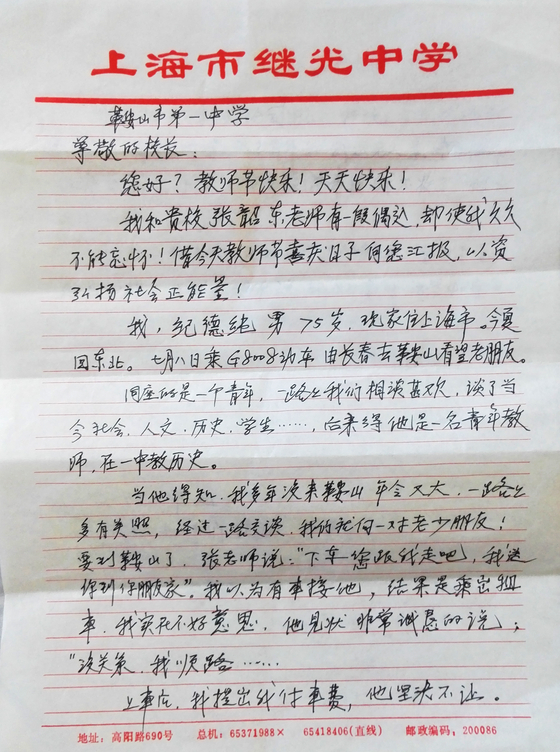 上海市继光中学
鞍山市第一中学
尊敬的校长：
您好？教师节快乐！天天快乐！
我和贵校张韶东老师有一段偶遇，却使我久久
不能忘怀！借今天教师节喜庆日子向您汇报，以资
弘扬社会正能量！
我，纪德纯 男 75岁.现家住上海市。今夏
回东北。七月八日乘G8008动车由长春去鞍山看望老朋友。
同座的是一个青年，一路上我们相谈甚欢，谈了当
今社会.人文.历史.学生……，后来得他是一名青年教
师，在一中教历史。
当他得知.我多年没来鞍山年令又大.一路上
多有关照，经过一路交谈.我们犹同一对老少朋友！
要到鞍山了.张老师说："下车您跟我走吧，我送
你到你朋友家"。我以为有车接他，结果是乘出租
车.我实在不好意思.他见状非常诚恳的说；
"没关系.我顺路……
上车后，我提出我付车费，他坚决不让。
地址：高阳路690号 总机：65371988× 65418406(直线) 邮政编码：200086